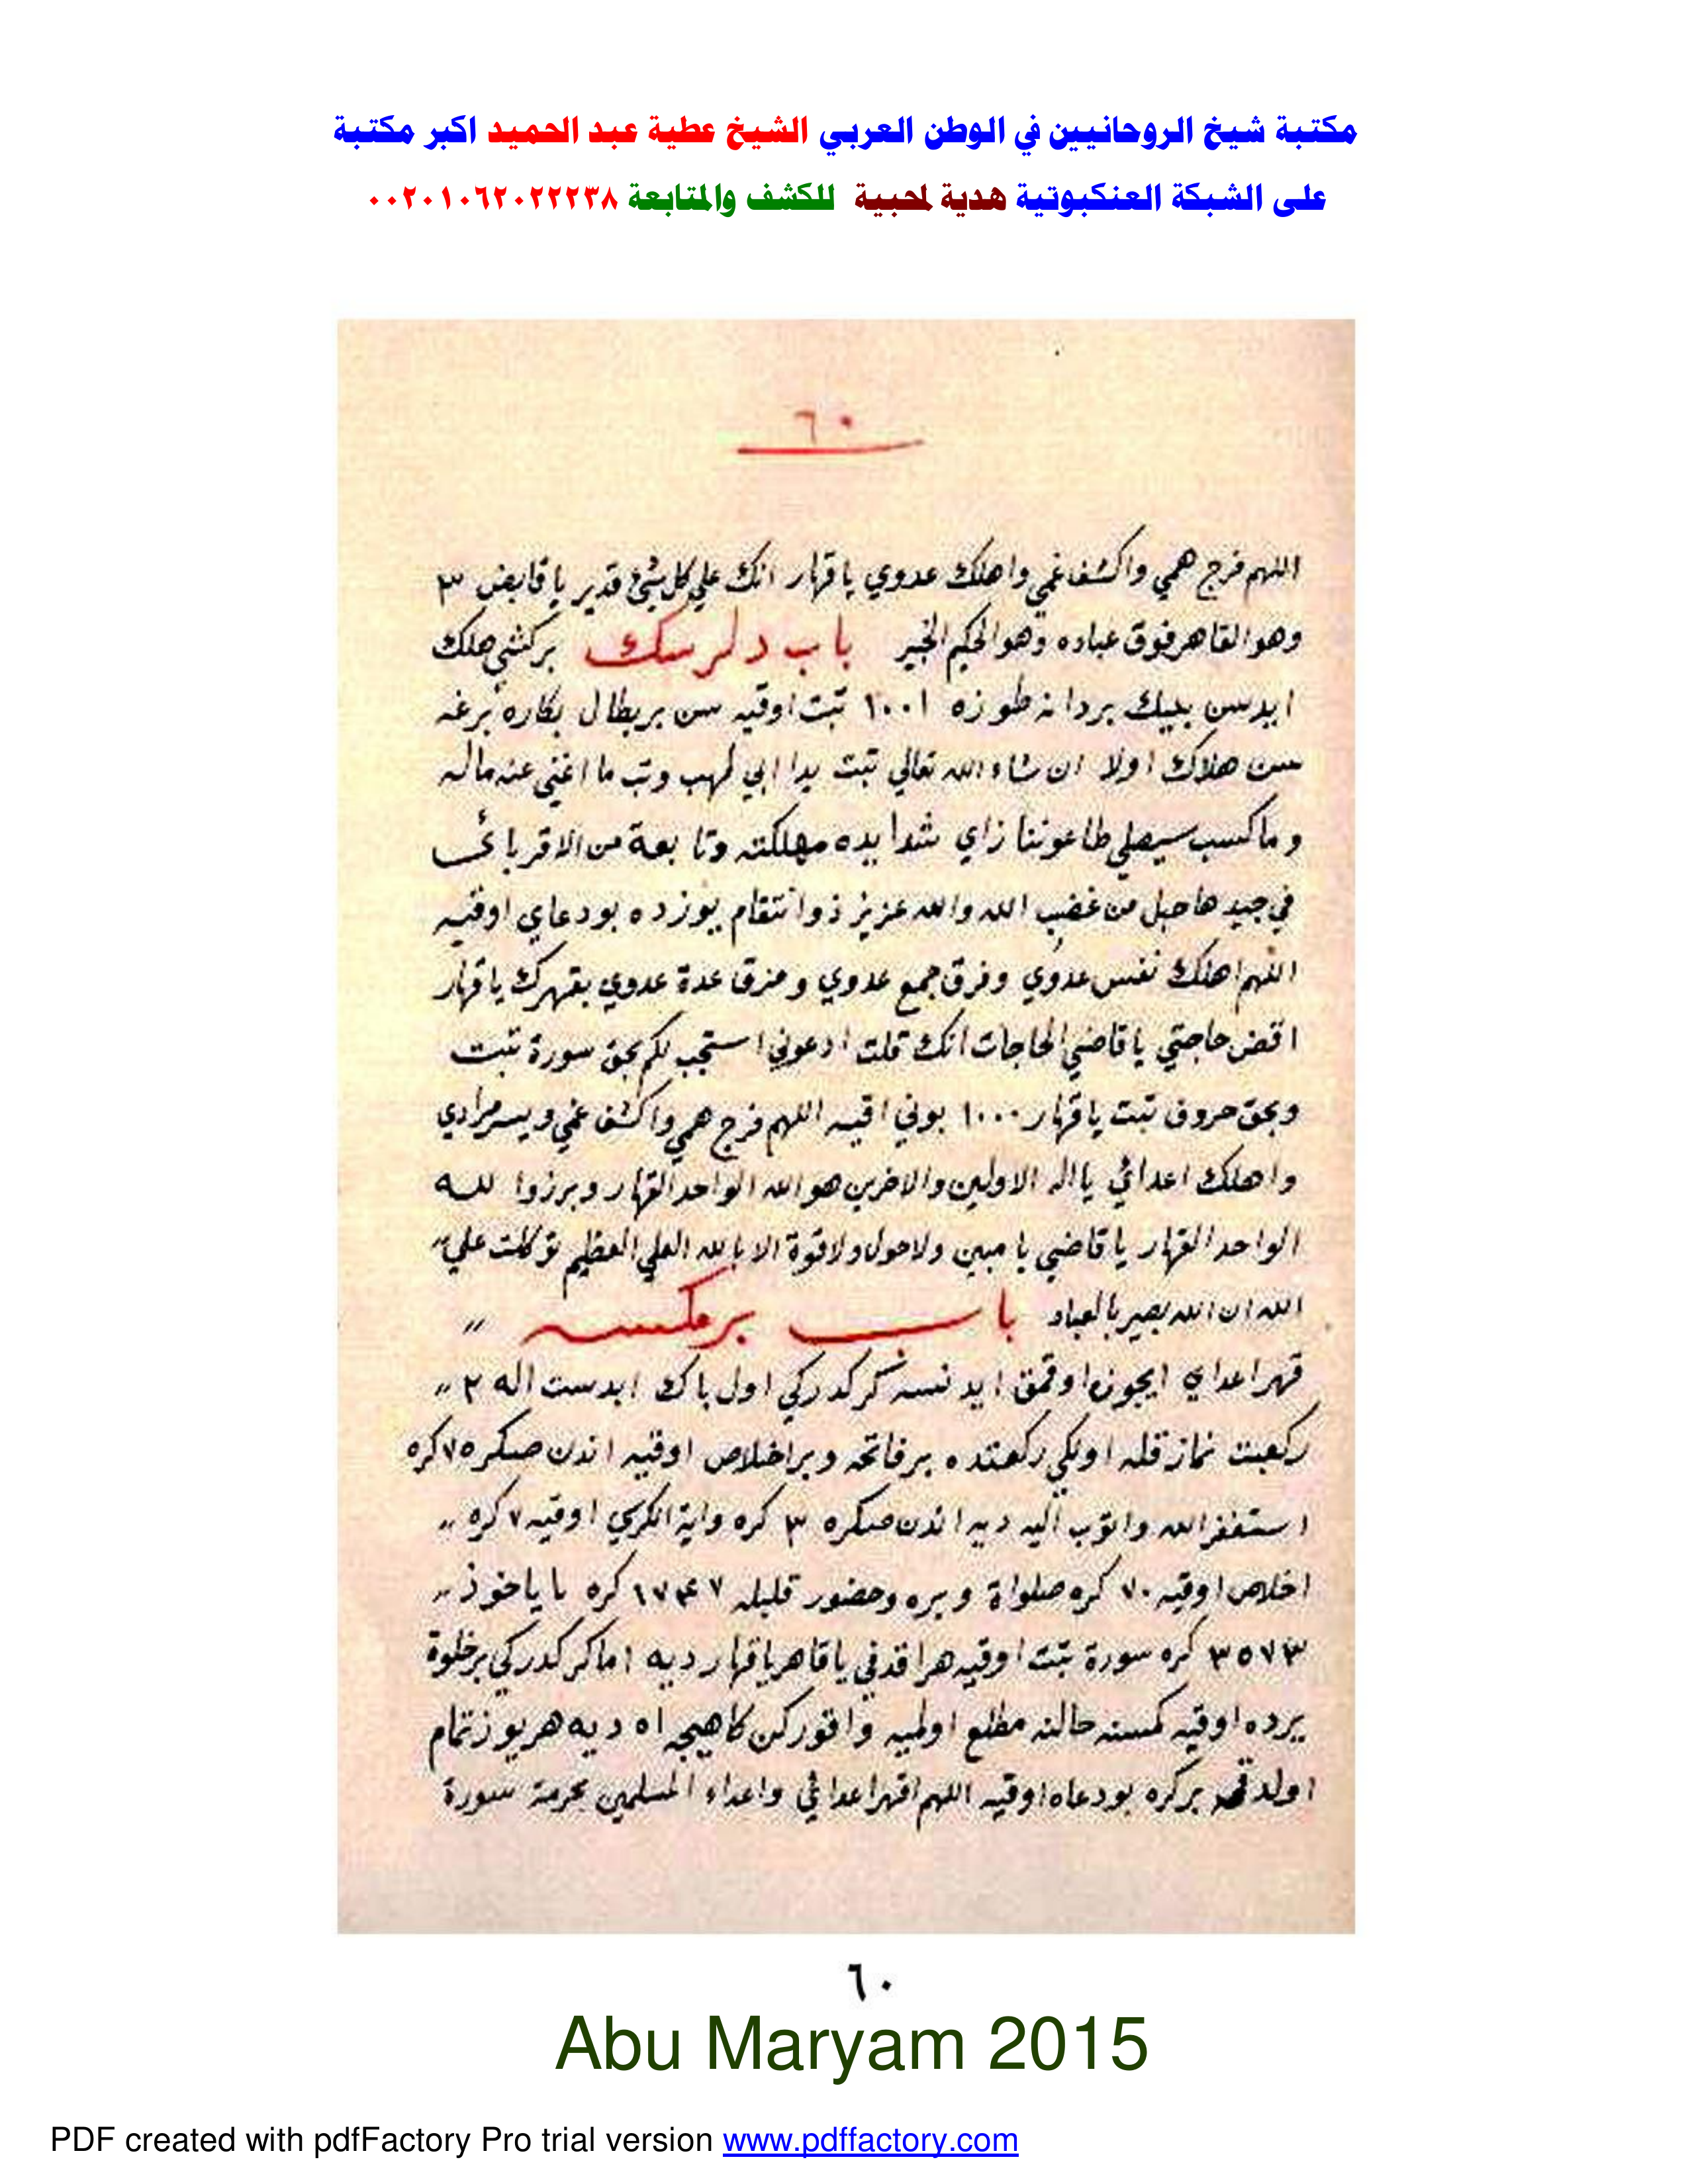 مكتبة شيخ الروحانيين في الوطن العربي الشيخ عطية عبد الحميد اكبر مكتبة
على الشبكة العنكبوتية هدية لمحبية للكشف والمتابعة ٠٠٢٠١٠٦٢٠٢٢٢٣٨
٦٠
اللهم فرج همي واكشف غمي واهلك عدوي ياقهار انك علي كل شئ قدير ياقابض ٣
وهو القاهر فوق عباده وهو الحكيم الخبير باب دلرسك بركشي هلك
ايدسن بيك بردانه طوزه ١٠٠١ تبت اوقيه سن بربطال بكاره برغه
سن هلاك اولا ان شاء الله تعالي تبت يدا ابي لهب وتب ما اغني عنه ماله
وماكسب سيصلي طاعوننا زاي شدايده مهلكته وتابعة من الاقربائ
في جيدها حبل من غضب الله والله عزيز ذوانتقام يوزده بودعاي اوقيه
اللهم اهلك نفس عدوي وفرق جمع عدوي ومزق عدة عدوي بقهرك ياقهار
اقض حاجتي ياقاضي الحاجات انك قلت ادعوني استجب لكم بحق سورة تبت
وبحق حروف تبت ياقهار ١٠٠٠ بوني اقيه اللهم فرج همي واكشف غمي ويسر مرادي
واهلك اعدائي ياله الاولين والاخرين هو الله الواحد القهار وبرزوا لله
الواحد القهار ياقاضي يامبين ولاحول ولاقوة الا بالله العلي العظيم توكلت علي
الله ان الله بصير بالعباد باب بركمسه
قهر اعداي ايجون اوقمق ايدنسه كركدركي اول باك ابدست اله ٢
ركعت نماز قله اولكي ركعتده برفاتحه وبراخلاص اوقيه اندن صكره ٧ كره
استغفر الله واتوب اليه ديه اندن صكره ٣ كره واية الكرسي اوقيه ٧ كره
اخلاص اوقيه ٧٠ كره صلواة ويره وحضور قلبله ١٧٤٧ كره
٣٥٧٣ كره سورة تبت اوقيه هر اقدقي ياقاهر ياقهار ديه اماكركدركي برخلوة
يرده اوقيه كمسنه حالنه مطلع اولميه واقوركن كاهيجه اه ديه هريوزتمام
اولدقه بركره بودعاه اوقيه اللهم اقهر اعدائي واعداء المسلمين بحرمة سورة
٦٠
Abu Maryam 2015
PDF created with pdfFactory Pro trial version www.pdffactory.com